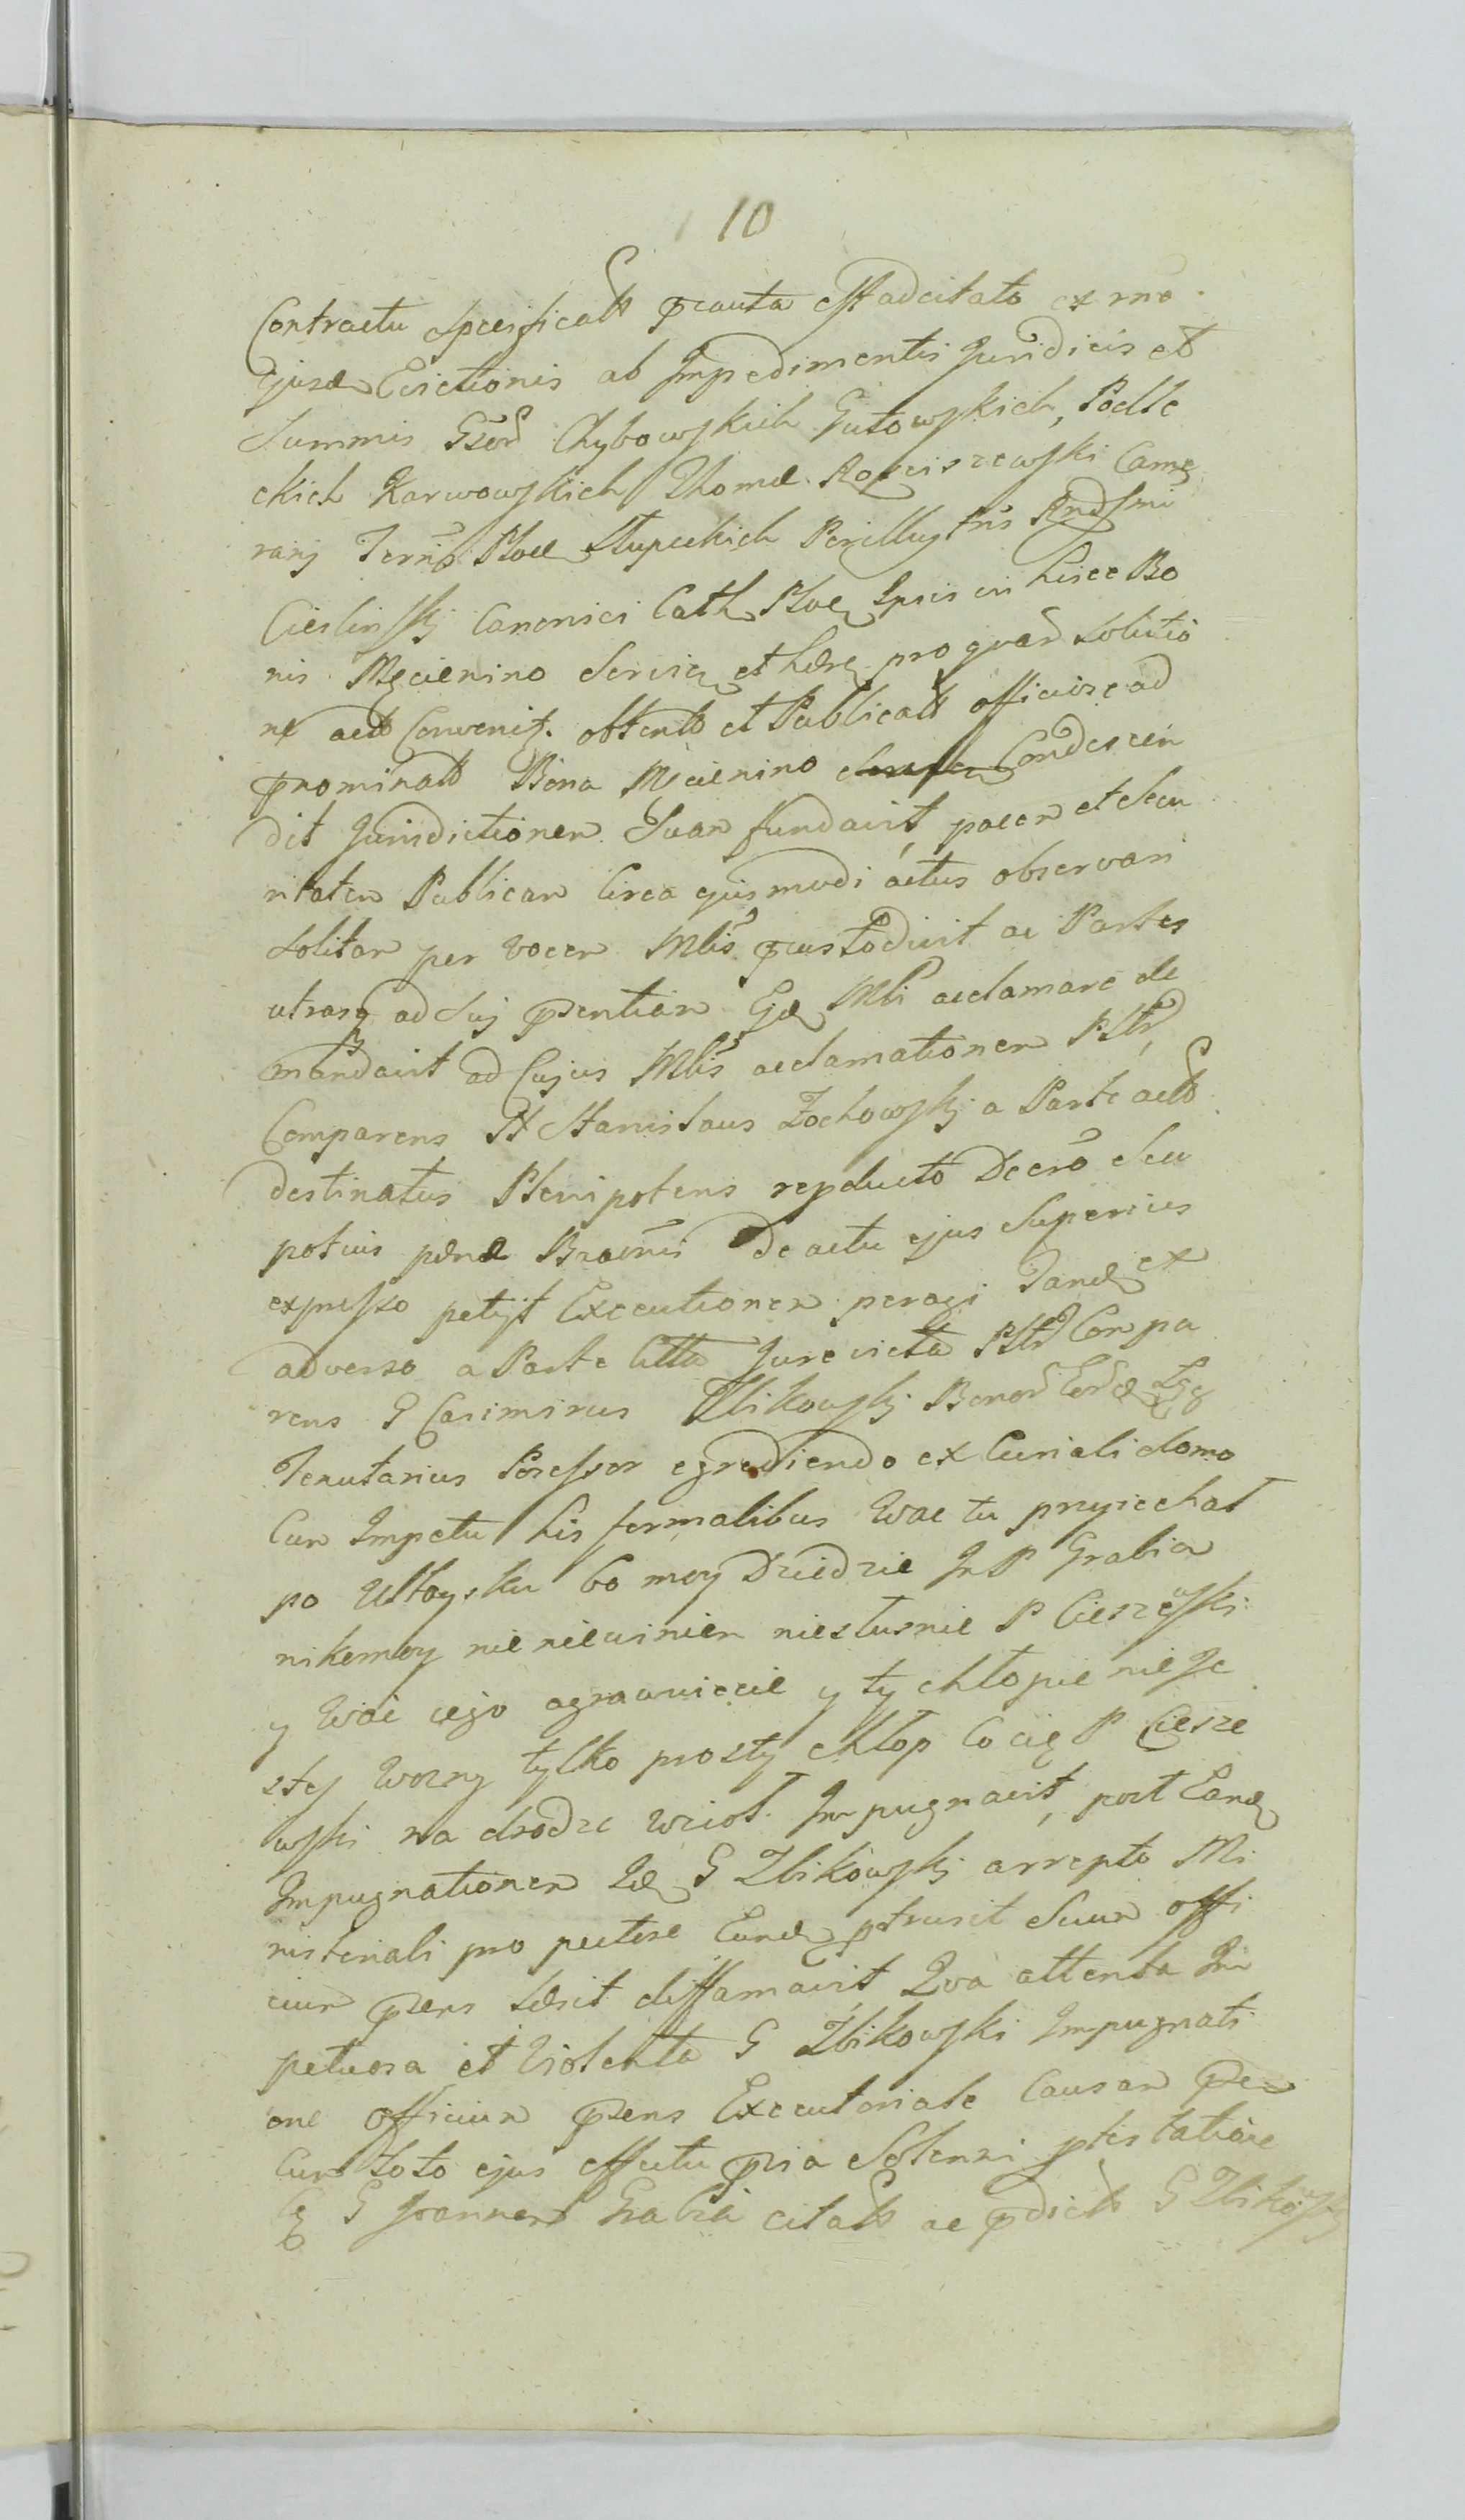 10
Contractu specificatt pcauta est adcitato ex rno
Ejusd Evictionis ab Impedimentis Juridicis et
Summis GGrd Chybowskich Gutowskich, Podle
ckich Karwowskich Thomæ Rosciszewski Came
rarij Terris Ploce Słupeckich Perillustris Rndssmi
Cieslinski Canonici Cath Ploce Ipsis in hisce Bo
nis Mycienino Servien et hære pro quar solutio
ne actt Convenit. obtentt et Publicatt officiose ad
pnominatt Bona Mcienino Condescen
dit Jurisdictionem Suam fundavit, pacem et Secu
ritatem Publicam circa ejusmodi actus observari
solitam per vocem Mlis pcustodivit ac Partes
utrasq ad Sui psentiam Ejd Mli acclamare de
mandavit ad Cujus Mlis acclamationem Pltr
Comparens N Stanislaus Zochowskj a Parte actt
destinatus Plenipotens repducto Decro Seu
potius pænæ Bracnis De actu ejus Superius
expresso petijt Executionem peragi Tand ex
adverso a Parte Citta Jurevicta Pltr Compa
rens G Casimirus Zbikowskj Bonor
Tenutarius Possessor egrediendo ex Curiali domo
Cum Impetu his formalibus Wac tu przyiechał
po Ułtaysku bo moy Dziedzic JP Grabia
nikomoy nie niewinien niesłusnie P Ciesze͠wski
y Wac iego agrawuiecie y ty chłopie nie Je
stes Wozny tylko prosty chłop Co cię P Ciesze
wski na drodze wziot. Impugnavit, post Eand
Impugnationem Id G Zbikowskj arrepto Mi
nisteriali pro pectore Eund ptrusit Suum offi
cium psens læsit diffamavit Qva attenta Im
petuosa et Violenta G Zbikowski Impugnati
one officium psens Executoriale Causam psen
Cum toto ejus effectu pvia Solenni ptestatione
G Joannem Grabia citatt ac pdictt G Zbikowskj